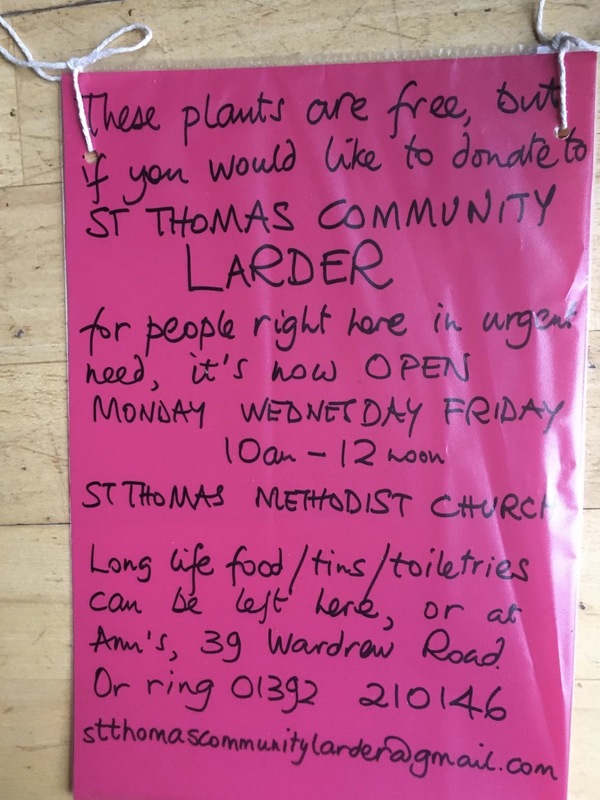 These plants are free, but
if you would like to donate to
ST THOMAS COMMUNITY
LARDER
for people right here in urgent
need, it's now OPEN
MONDAY WEDNESDAY FRIDAY
10am - 12 noon
ST THOMAS METHODIST CHURCH
Long life food/tins/toiletries
can be left here, or at
Ann's, 39 Wardrew Road.
Or ring 01392 210146
stthomascommunitylarder@gmail.com